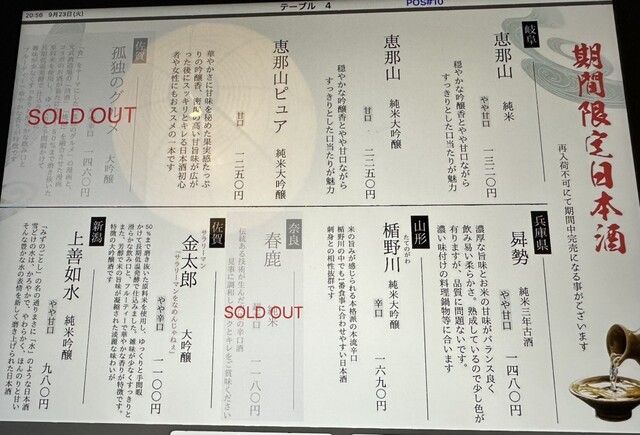 20:56 9月23日(火)
テーブル 4
POS#10
期間限定日本酒
再入荷不可にて期間中完売になる事がございます
岐阜
恵那山 純米
やや甘口 一三二〇円
穏やかな吟醸香とやや甘口ながら
すっきりとした口当たりが魅力
恵那山 純米大吟醸
甘口 一二五〇円
穏やかな吟醸香とやや甘口ながら
すっきりとした口当たりが魅力
恵那山ピュア 純米大吟醸
甘口 一二五〇円
華やかさに甘味を秘めた果実感たっぷ
りの吟醸香、密度の高い甘旨味が広が
った後にスッキリとキレる日本酒初心
者や女性にもおススメの一本です
佐賀
孤独のグルメ 大吟醸
一四六〇円
SOLD OUT
兵庫県
曻勢 純米三年古酒
やや甘口 一四八〇円
濃厚な旨味とお米の甘味がバランス良く
飲み易い柔らかさ。熟成しているので少し色が
有りますが、品質に問題ないです。
濃い味付けの料理鍋物等に合います
山形
たてのがわ
楯野川 純米大吟醸
辛口 一六九〇円
米の旨みが感じられる本格派の本流辛口
楯野川の中でも1番食事に合わせやすい日本酒
刺身との相性抜群です
奈良
春鹿 純米
辛口 一一八〇円
伝統ある技術が生んだ
SOLD OUT
佐賀
サラリーマン
金太郎 大吟醸
「サラリーマンをなめんじゃねぇ」
やや辛口 一一〇〇円
50%まで磨き抜いた原料米を使用し、ゆっくりと手間暇
かけて長期低温発酵で仕込みました。雑味が少なくすっきりと
滑らかな飲み口と、フルーティーで華やかな香りが特徴です。
また、芳醇で米の旨味が凝縮された濃麗な味わいが
特徴の大吟醸酒です
新潟
上善如水 純米吟醸
やや甘口 九八〇円
「みずのごとし」の名の通りまさに“水”のような日本酒
雪どけの水は、きよらかで、やわらかく、ほんのりと甘い
そんな豊かな水の表情を新しく磨き上げられた日本酒